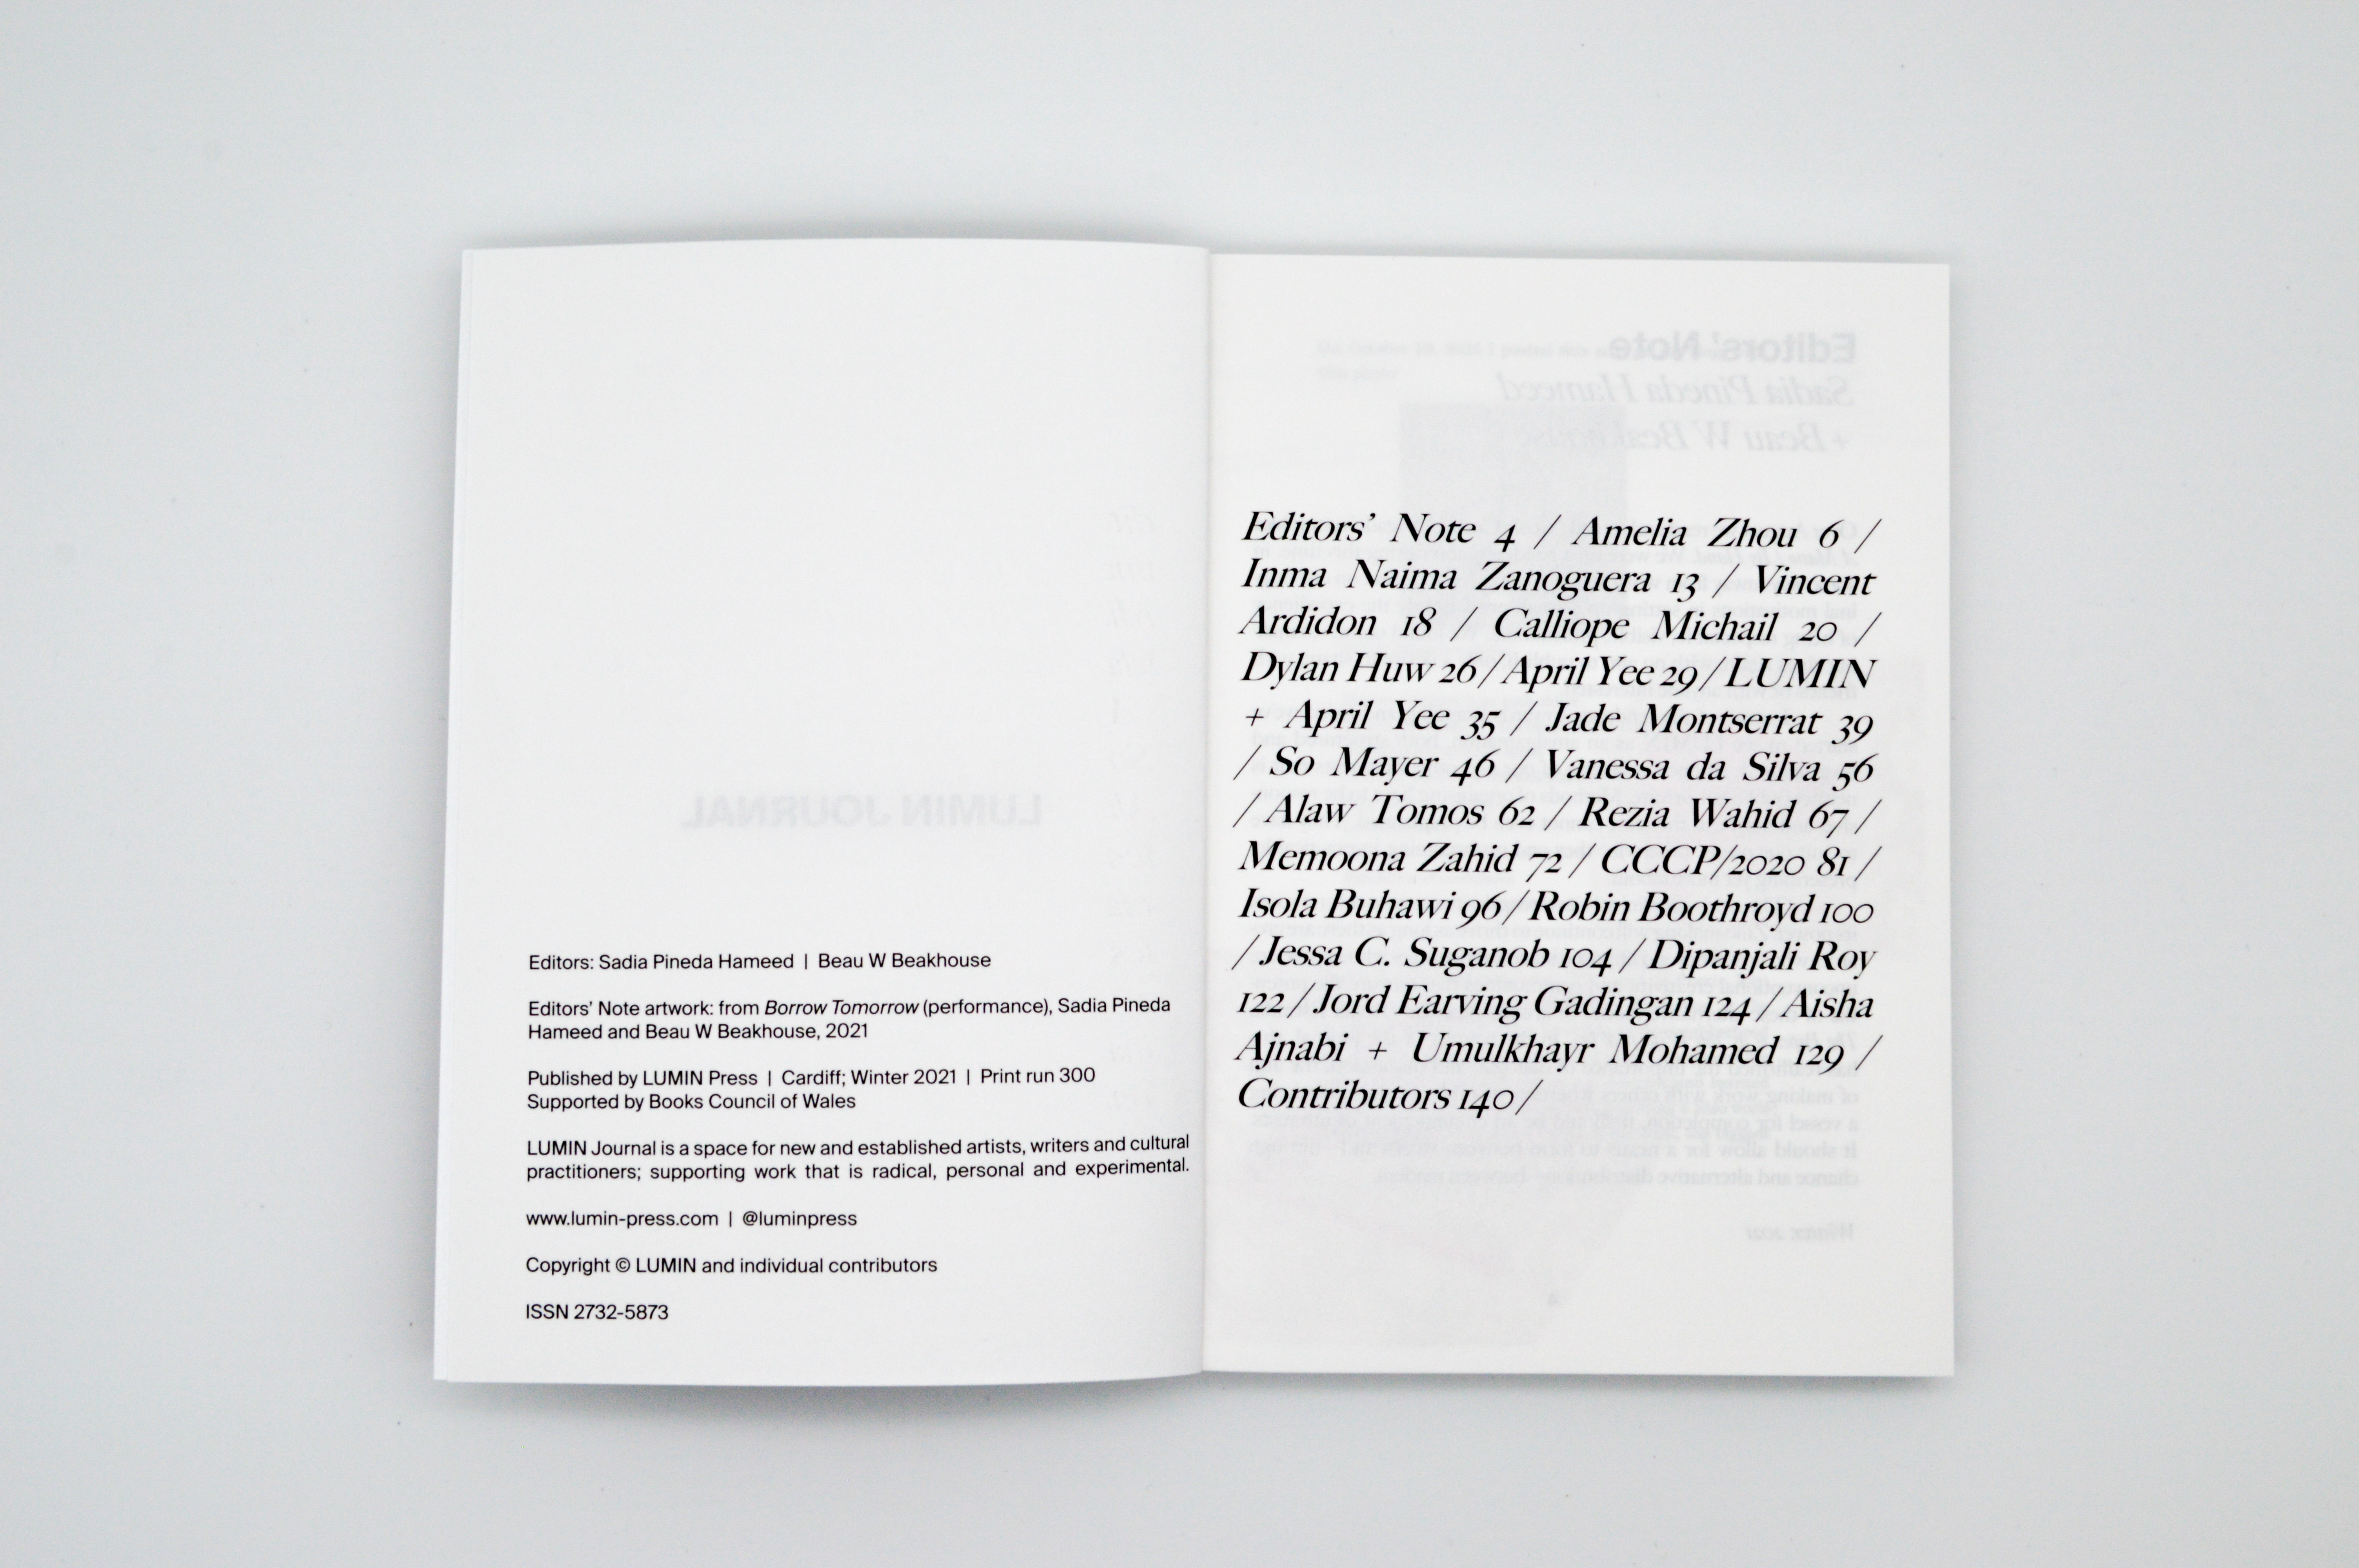 Editors: Sadia Pineda Hameed | Beau W Beakhouse
Editors' Note artwork: from Borrow Tomorrow (performance), Sadia Pineda
Hameed and Beau W Beakhouse, 2021
Published by LUMIN Press | Cardiff; Winter 2021 | Print run 300
Supported by Books Council of Wales
LUMIN Journal is a space for new and established artists, writers and cultural
practitioners; supporting work that is radical, personal and experimental.
www.lumin-press.com | @luminpress
Copyright © LUMIN and individual contributors
ISSN 2732-5873
LUMIN JOURNAL
Editors' Note
Sadia Pineda Hameed
+ Beau W Beakhouse
Editors' Note 4 / Amelia Zhou 6 /
Inma Naima Zanoguera 13 / Vincent
Ardidon 18 / Calliope Michail 20 /
Dylan Huw 26 / April Yee 29 / LUMIN
+ April Yee 35 / Jade Montserrat 39
/ So Mayer 46 / Vanessa da Silva 56
/ Alaw Tomos 62 / Rezia Wahid 67 /
Memoona Zahid 72 / CCCP/2020 81 /
Isola Buhawi 96 / Robin Boothroyd 100
/ Jessa C. Suganob 104 / Dipanjali Roy
122 / Jord Earving Gadingan 124 / Aisha
Ajnabi + Umulkhayr Mohamed 129 /
Contributors 140 /
Winter 2021